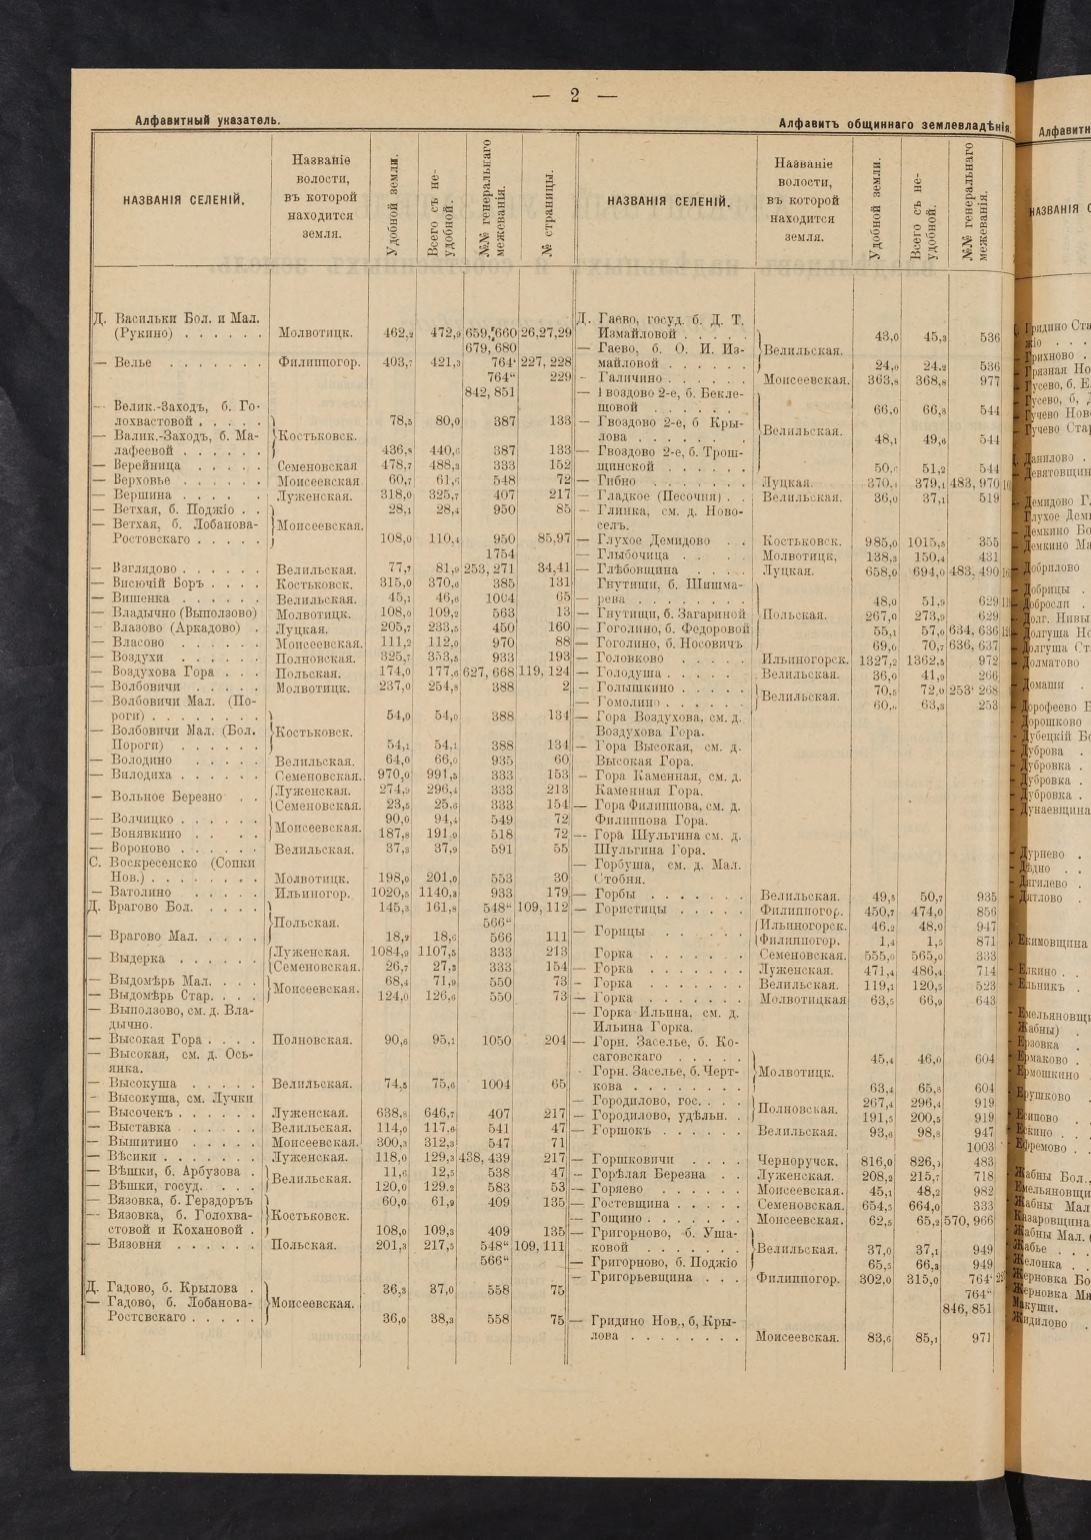 — 2 —
Алфавитный указатель.
НАЗВАНІЯ СЕЛЕНІЙ. Названіе волости, въ которой находится земля. Удобной земли. Всего съ неудобной. №№ генеральнаго межеванія. № страницы.
Д. Васильки Бол. и Мал.
(Рукино) . . . . . . Молвотицк. 462,2 472,9 659, 660 26,27,29
679, 680
— Велье . . . . . . . Филиппогор. 403,7 421,3 764‘ 227, 228
764“ 229
842, 851
— Велик.-Заходъ, б. Го-
лохвастовой . . . . . 78,5 80,0 387 133
— Валик.-Заходъ, б. Ма- Костьковск.
лафеевой . . . . . . 436,8 440,6 387 133
— Верейница . . . . . Семеновская 478,7 488,3 333 152
— Верховье . . . . . . Моисеевская 60,7 61,6 548 72
— Вершина . . . . . Луженская. 318,0 325,7 407 217
— Ветхая, б. Поджіо . . 28,1 28,4 950 85
— Ветхая, б. Лобанова- Моисеевская.
Ростовскаго . . . . . 108,0 110,4 950 85,97
1754
— Взглядово . . . . . . Велильская. 77,7 81,9 253, 271 34,41
— Висючій Боръ . . . . Костьковск. 315,0 370,6 385 131
— Вишенка . . . . . . Велильская. 45,1 46,6 1004 65
— Владычно (Выползово) Молвотицк. 108,0 109,2 563 13
— Влазово (Аркадово) . Луцкая. 205,7 233,5 450 160
— Власово . . . . . Моисеевская. 111,2 112,0 970 88
— Воздухи . . . . . . Полновская. 325,7 353,5 933 193
— Воздухова Гора . . . Польская. 174,0 177,6 627, 668 119, 124
— Волбовичи . . . . . Молвотицк. 237,0 254,8 388 2
— Волбовичи Мал. (По-
роги) . . . . . . . . 54,0 54,0 388 134
— Волбовичи Мал. (Бол. Костьковск.
Пороги) . . . . . . 54,1 54,1 388 134
— Володино . . . . . Велильская. 64,0 66,0 935 60
— Вилодиха . . . . . . Семеновская. 970,0 991,5 333 153
— Вольное Березно . . Луженская. 274,9 296,4 333 213
Семеновская. 23,5 25,6 333 154
— Волчицко . . . . . 90,0 94,4 549 72
— Вонявкино . . . . Моисеевская. 187,8 191,0 518 72
— Вороново . . . . . . Велильская. 37,3 37,9 591 55
С. Воскресенско (Сопки
Нов.) . . . . . . . . Молвотицк. 198,0 201,0 553 30
— Ватолино . . . . . Ильиногор. 1020,5 1140,3 933 179
Д. Врагово Бол. . . . . 145,3 161,8 548“ 109, 112
Польская. 566“
— Врагово Мал. . . . . 18,2 18,6 566 111
— Выдерка . . . . . Луженская. 1084,9 1107,5 333 213
Семеновская. 26,7 27,3 333 154
— Выдомѣрь Мал. . . . 68,4 71,9 550 73
— Выдомѣрь Стар. . . . Моисеевская. 124,0 126,6 550 73
— Выползово, см. д. Вла-
дычно.
— Высокая Гора . . . . Полновская. 90,6 95,1 1050 204
— Высокая, см. д. Ось-
янка.
— Высокуша . . . . . Велильская. 74,5 75,6 1004 65
- Высокуша, см. Лучки
— Высочекъ . . . . . . Луженская. 638,8 646,7 407 217
— Выставка . . . . . Велильская. 114,0 117,6 541 47
— Вышитино . . . . . Моисеевская. 300,3 312,3 547 71
— Вѣсики . . . . . . . Луженская. 118,0 129,3 438, 439 217
— Вѣшки, б. Арбузова . 11,6 12,5 538 47
— Вѣшки, госуд. . . . Велильская. 120,0 129,2 583 53
— Вязовка, б. Герздоръъ 60,0 61,9 409 135
— Вязовка, б. Голохва- Костьковск.
стовой и Кохановой . 108,0 109,3 409 135
— Вязовня . . . . . . Польская. 201,3 217,5 548“ 109, 111
566“
Д. Гадово, б. Крылова . 36,3 37,0 558 75
— Гадово, б. Лобанова- Моисеевская.
Ростсвскаго . . . . . 36,0 38,3 558 75
Алфавитъ общиннаго землевладѣнія.
НАЗВАНІЯ СЕЛЕНІЙ. Названіе волости, въ которой находится земля. Удобной земли. Всего съ неудобной. №№ генеральнаго межеванія.
Д. Гаево, госуд. б. Д. Т.
Измайловой . . . . . 43,0 45,3 536
— Гаево, б. О. И. Из- Велильская.
майловой . . . . . . 24,0 24,2 536
— Галичино . . . . . . Моисеевская. 363,8 368,8 977
— Гвоздово 2-е, б. Бекле-
шовой . . . . . . 66,0 66,8 544
— Гвоздово 2-е, б Кры- Велильская.
лова . . . . . . . . 48,1 49,6 544
— Гвоздово 2-е, б. Трош-
щинской . . . . . . 51,2 544
— Гибно . . . . . . . Луцкая. 370,1 379,1 483, 970
— Гладкое (Песочня) . . Велильская. 36,0 37,1 519
— Глинка, см. д. Ново-
селъ.
— Глухое Демидово . . Костьковск. 985,0 1015,5 355
— Глыбочица . . . . Молвотицк, 138,3 150,4 431
— Глѣбовщина . . . . Луцкая. 658,0 694,0 483, 490
Гнутищи, б. Шишма-
рева . . . . . . . . 48,0 51,9 629
— Гнутищи, б. Загариной Польская. 267,0 273,9 629
— Гоголино, б. Федоровой 55,1 57,0 634, 636
— Гоголино, б. Носовичъ 69,0 70,7 636, 637
— Головково . . . . . Ильиногорск. 1327,2 1362,5 972
— Голодуша . . . . . . Велильская. 36,0 41,9 266
— Голышкино . . . . . 70,5 72,0 253‘ 268
— Гомолино . . . . . . Велильская. 63,3 253
— Гора Воздухова, см. д.
Воздухова Гора.
— Гора Высокая, см. д.
Высокая Гора.
— Гора Каменная, см. д.
Каменная Гора.
— Гора Филиппова, см. д.
Филиппова Гора.
— Гора Шульгина см. д.
Шульгина Гора.
— Горбуша, см. д. Мал.
Стобня.
— Горбы . . . . . . . Велильская. 49,5 50,7 935
— Гористицы . . . . . Филиппогор. 450,7 474,0 856
— Горицы . . . . . Ильиногорск. 46,2 48,0 947
Филиппогор. 1,4 1,5 871
Горка . . . . . . . Семеновская. 555,0 565,0 333
— Горка . . . . . . . Луженская. 471,4 486,4 714
— Горка . . . . . . . Велильская. 119,1 120,5 523
— Горка . . . . . . . Молвотицкая 63,5 66,9 643
— Горка Ильина, см. д.
Ильина Горка.
— Горн. Заселье, б. Ко-
саговскаго . . . . . 45,4 46,0 604
Горн. Заселье, б. Черт- Молвотицк.
кова . . . . . . . . 63,4 65,8 604
— Городилово, гос. . . . 267,4 296,4 919
— Городилово, удѣльн. . Полновская. 191,5 200,5 919
— Горшокъ . . . . . . Велильская. 93,6 98,3 947
1003
— Горшковичи . . . . Черноручск. 816,0 826,1 483
— Горѣлая Березна . . Луженская. 208,2 215,7 718
— Горяево . . . . . . Моисеевская. 45,1 48,2 982
— Гостевщина . . . . . Семеновская. 654,5 664,0 333
— Гощино . . . . . . . Моисеевская. 62,5 65,2 570, 966
— Григорново, б. Уша-
ковой . . . . . . . Велильская. 37,0 37,1 949
— Григорново, б. Поджіо 65,5 66,3 949
— Григорьевщина . . . Филиппогор. 302,0 315,0 764‘
764“
846, 851
— Гридино Нов., б, Кры-
лова . . . . . . . . Моисеевская. 83,6 85,1 971